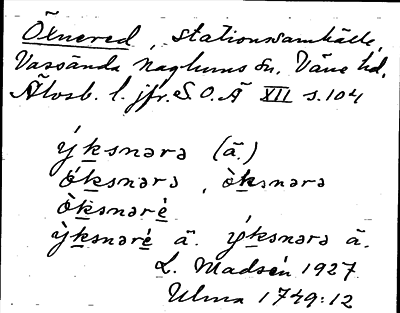 Öxnered, stationssamhälle,
Vassända Naglums sn. Väne hd.
Älvsb. l. jfr. S.O.Ä XII s.104
ýksnərə (ä.)
óksnərə, òksnərə
òksnəré
ỳksnəré ä. ýksnərə ä.
L. Madsén 1927
Ulma 1749:12